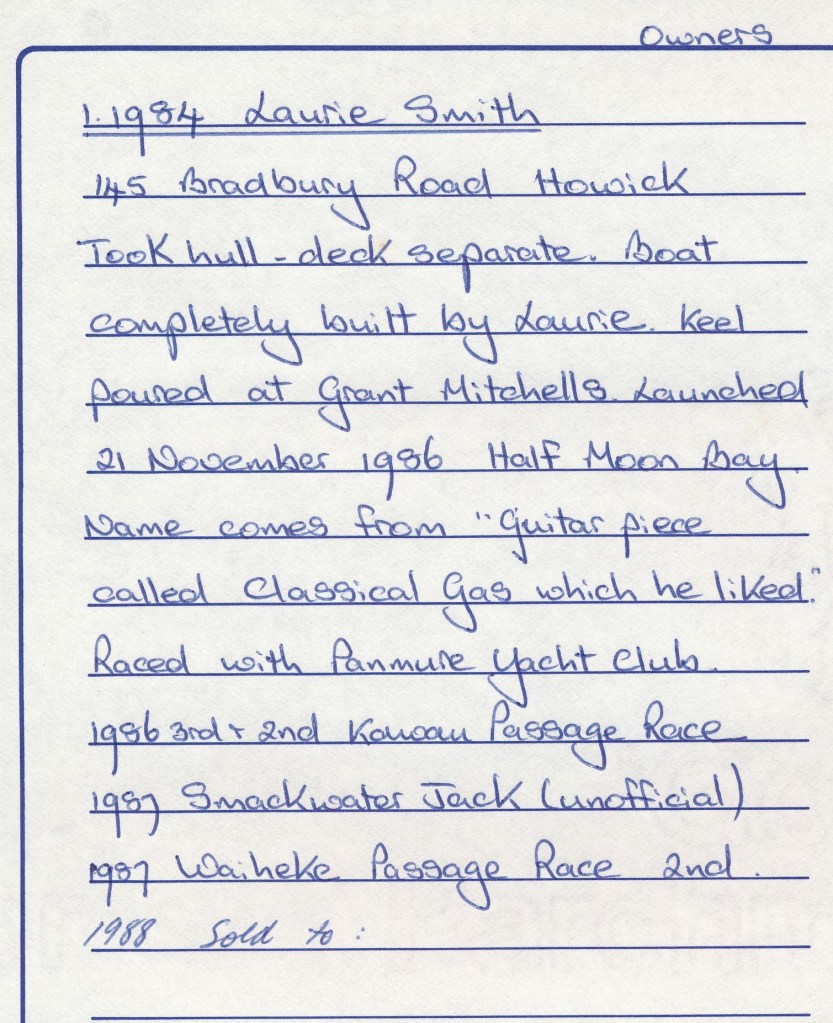 Owners
1. 1984 Laurie Smith
145 Bradbury Road Howick
Took hull - deck separate. Boat
completely built by Laurie. Keel
poured at Grant Mitchells. Launched
21 November 1986 Half Moon Bay.
Name comes from "Guitar piece
called Classical Gas which he liked."
Raced with Panmure Yacht Club.
1986 3rd + 2nd Kawau Passage Race
1987 Smackwater Jack (unofficial)
1987 Waiheke Passage Race 2nd.
1988 Sold to: